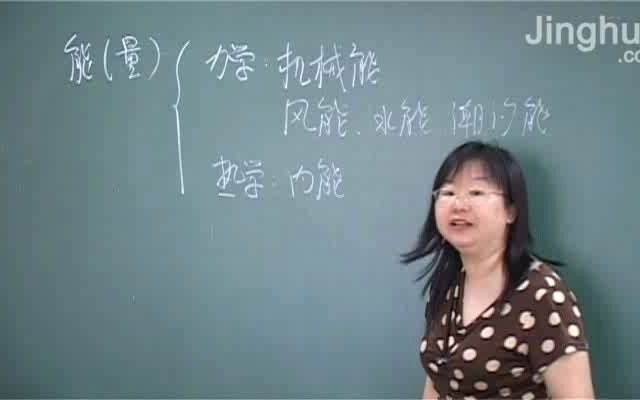 Jinghu
.co
能(量) { 力学:机械能
风能、水能、潮汐能
热学:内能